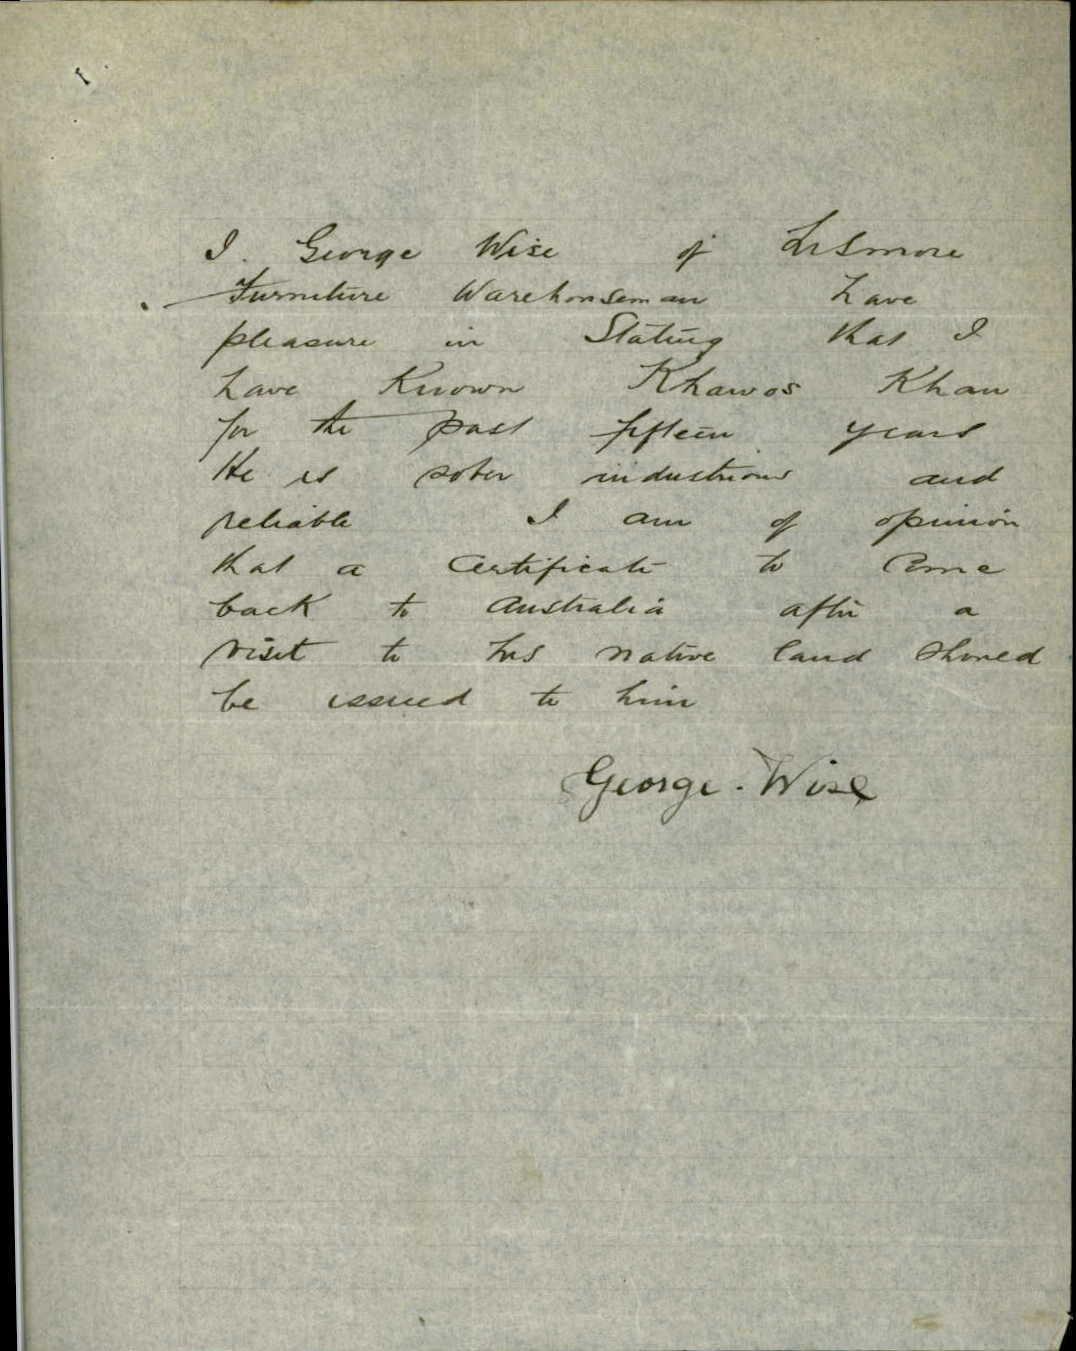 I. George Wise of Lismore
Furniture Warehouseman have
pleasure in Stating that I
have Known Khawos Khan
for the past fifteen years
He is sober industrious and
reliable I am of opinion
that a Certificate to Come
back to Australia after a
visit to his native land should
be issued to him
George. Wise